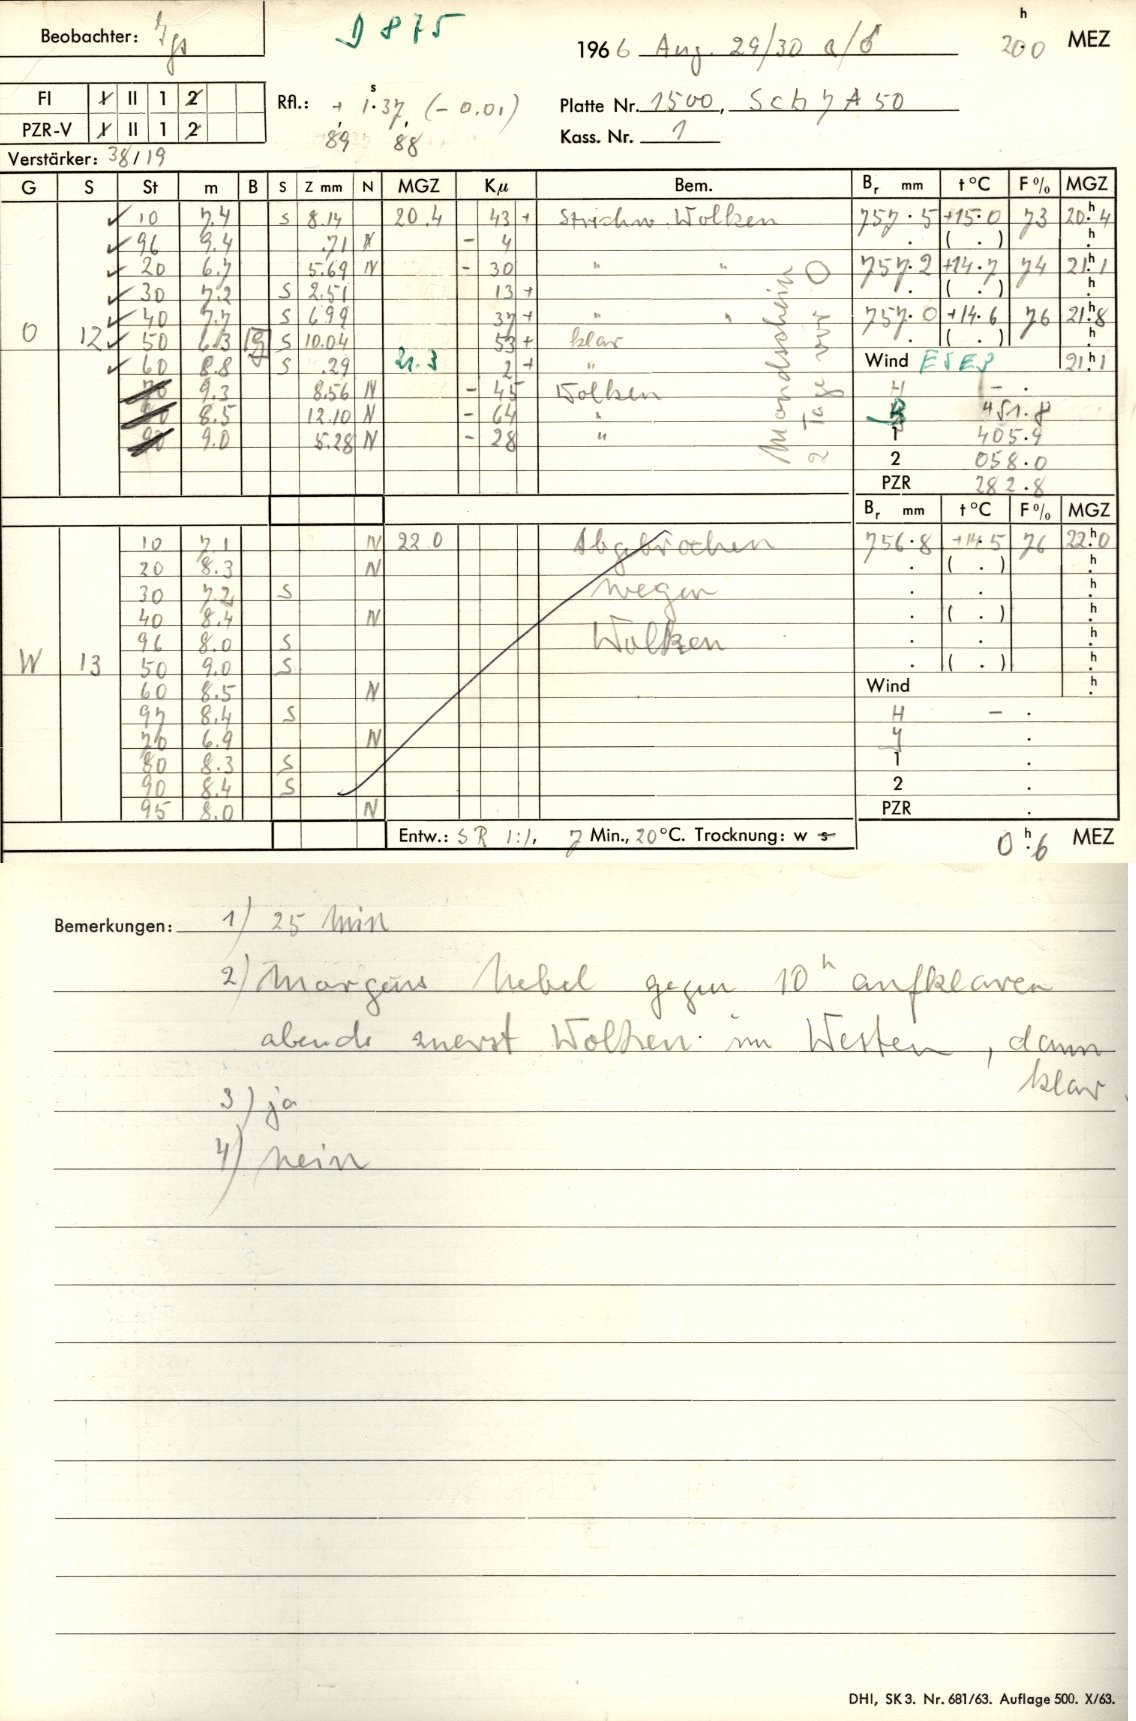 Beobachter: D 875 1966 Aug. 29/30 a/b 200 h MEZ
FI I II 1 2
PZR-V I II 1 2
Rfl.: + 1.s37 (- 0.01)
89 88
Platte Nr. 1500, Sch 7 A 50
Kass. Nr. 1
Verstärker: 38/19
G S St m B S Z mm N MGZ Kμ Bem. Br mm t °C F % MGZ
10 7.4 S 8.14 20.4 43 + Strichw. Wolken 757.5 +15.0 73 20.h4
96 9.4 .71 N - 4 . ( . ) h
20 6.7 5.69 N - 30 " " 757.2 +14.7 74 21.h1
30 7.2 S 2.51 13 + . ( . ) h
40 7.7 S 6.99 37 + " " 757.0 +14.6 76 21.h8
O 12 50 6.3 S 10.04 53 + klar . ( . ) h
60 8.8 S .29 21.3 2 + " Wind 21.h1
70 9.3 8.56 N - 45 Wolken H - .
80 8.5 12.10 N - 64 " 451.8
90 9.0 5.28 N - 28 " 1 405.9
2 058.0
PZR 282.8
Mondschein
2 Tage vor O
Br mm t °C F % MGZ
10 7.1 N 22.0 Abgebrochen 756.8 +14.5 76 22.h0
20 8.3 N . ( . ) h
30 7.2 S wegen . . h
40 8.4 N . ( . ) h
96 8.0 S Wolken . . h
W 13 50 9.0 S . ( . ) h
60 8.5 N Wind h
97 8.4 S H - .
70 6.9 N .
80 8.3 S 1 .
90 8.4 S 2 .
95 8.0 N PZR .
Entw.: SR 1:1, 7 Min., 20 °C. Trocknung: w s 0 h.6 MEZ
Bemerkungen: 1) 25 Min
2) Morgens Nebel gegen 10 h aufklaren
abends zuerst Wolken im Westen, dann
klar.
3) ja
4) nein
DHI, SK 3. Nr. 681/63. Auflage 500. X/63.